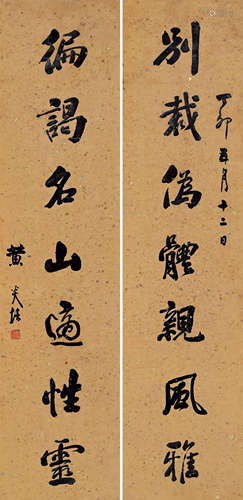 別裁偽體親風雅
丁卯五月十二日
徧謁名山適性靈
黃炎培